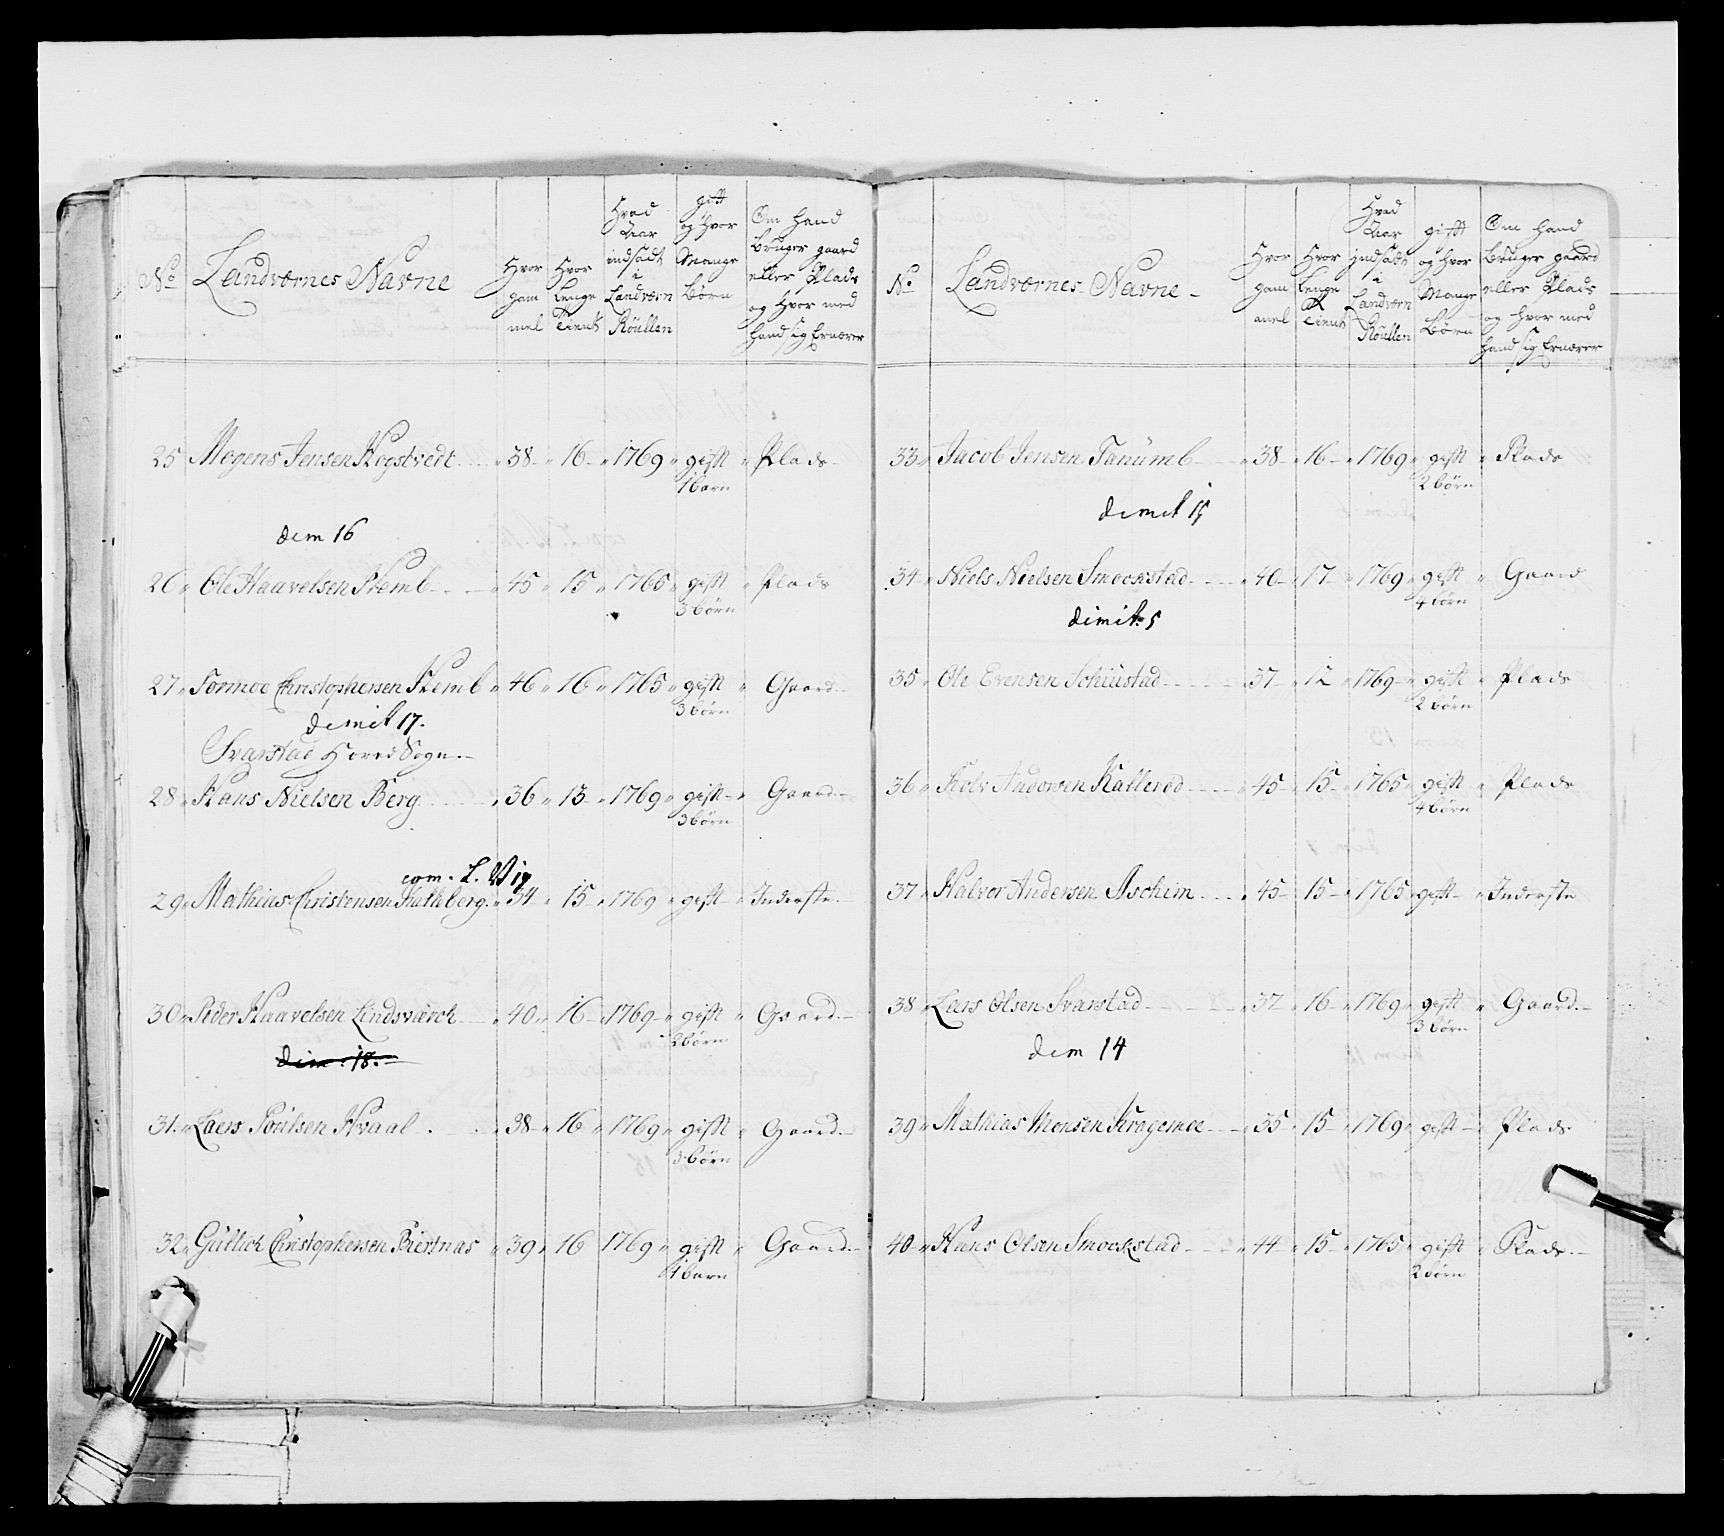 No
Landværnes Navne
Hvor gam mel
Hvor Lenge Tient
Hvad Aar indsadt i Landværn Roullen
gift og hvor Mange Børn
Om hand bruger gaard eller Plads og hvor med hand sig Ernærer
25 Mogens Jensen Hogstvedt 38 16 1769 gift Plads
1 barn
dem 16
26 Ole Haavelsen Kemb 45 15 1765 gift Plads
3 børn
27 Tormoe Christophersen Kemb 46 16 1765 gift Gaard
3 børn
demit 17.
Svarstad Hoved Sogn
28 Hans Nielsen Berg 36 13 1769 gift Gaard
3 børn
com. L. V 19
29 Mathias Christensen 34 15 1769 gift Inderste
30 Peder Haavelsen Lindsværck 40 16 1769 gift Gaard
2 børn
dim. 18.
31 Laers Poulsen Hvaal 38 16 1769 gift Gaard
3 børn
32 Gullich Christophersen Biertnæs 39 16 1769 gift Gaard
1 barn
No
Landværnes Navne
Hvor gam mel
Hvor Lenge Tient
Hvad Aar indsadt i Landværn Roullen
gift og hvor Mange Børn
Om hand bruger gaard eller Plads og hvor med hand sig Ernærer
33 Jacob Jensen Tanumb 38 16 1769 gift Plads
2 børn
demit 15
34 Niels Nielsen Smockstad 40 17 1769 gift Gaard
4 børn
dimit 5
35 Ole Evensen Schiustad 37 12 1769 gift Plads
2 børn
36 Andersen Kallerød 45 15 1765 gift Plads
4 børn
37 Halvor Andersen Aschim 45 15 1765 gift Inderste
38 Lars Olsen Svarstad 37 16 1769 gift Gaard
3 børn
dem 14
39 Mathias Monsen Kragemoe 35 15 1769 gift Plads
40 Hans Olsen Smockstad 44 15 1765 gift Plads
2 børn